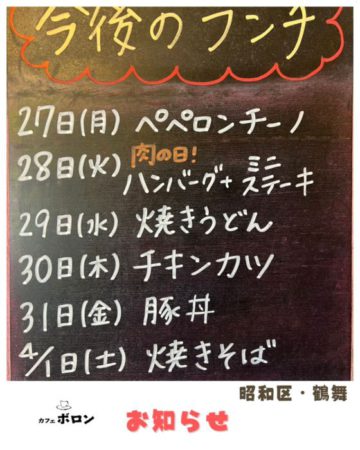 今後のランチ
27日(月) ペペロンチーノ
28日(火) 肉の日!
ハンバーグ+ミニステーキ
29日(水) 焼きうどん
30日(木) チキンカツ
31日(金) 豚丼
4/1日(土) 焼きそば
昭和区・鶴舞
カフェ ボロン
お知らせ